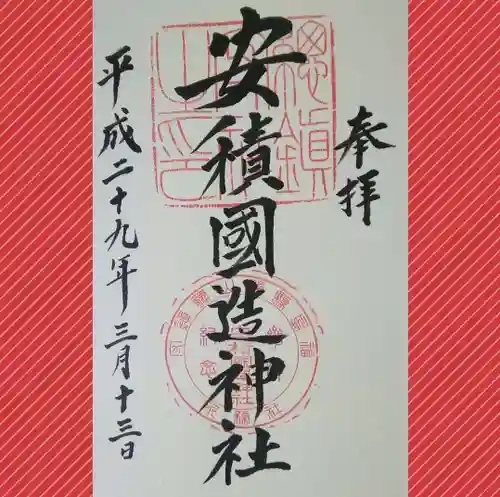 奉拝
安積國造神社
平成二十九年三月十三日